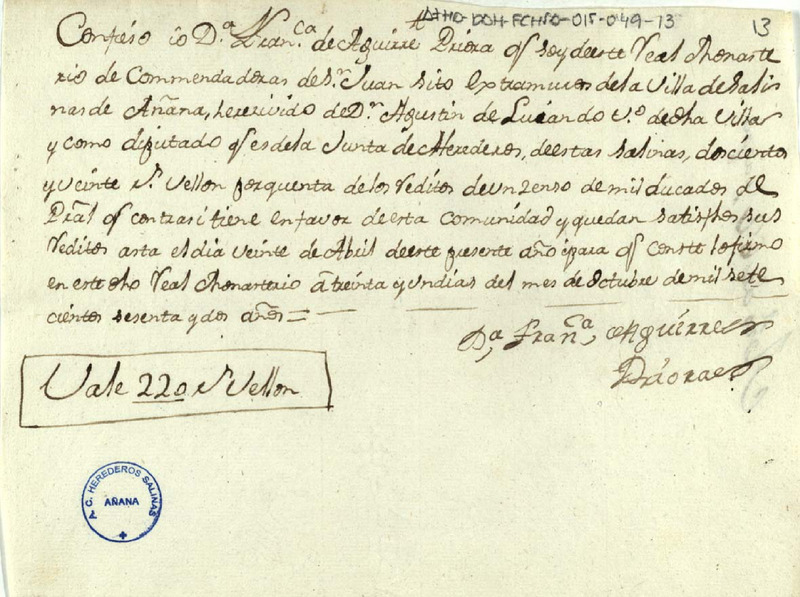 ATHO-DOH-FCHSO-015-049-13
13
Confeso io D.ª Fran.ca de Aguirre Priora q.e soy de este Real Monaste
rio de Commendadoras de S.n Juan sito extramuros de la Villa de Sali
nas de Añana, he rezivido de D.n Agustin de Luiando v.o de dha Villa
y como diputado q.e es de la Junta de Herederos, de estas Salinas, docientos
y veinte r.s vellon por quenta de los reditos de un zenso de mil ducados de
Pral q.e contra si tiene en favor de esta comunidad y quedan satisfhos sus
reditos asta el dia veinte de Abril de este presente año i para q.e conste lo firmo
en este dho Real Monasterio a treinta y un dias del mes de octubre de mil sete
cientos sesenta y dos años =
D.ª Fran.ca de Aguirre
Priora
Vale 220 r.s Vellon
A. C. HEREDEROS SALINAS
AÑANA